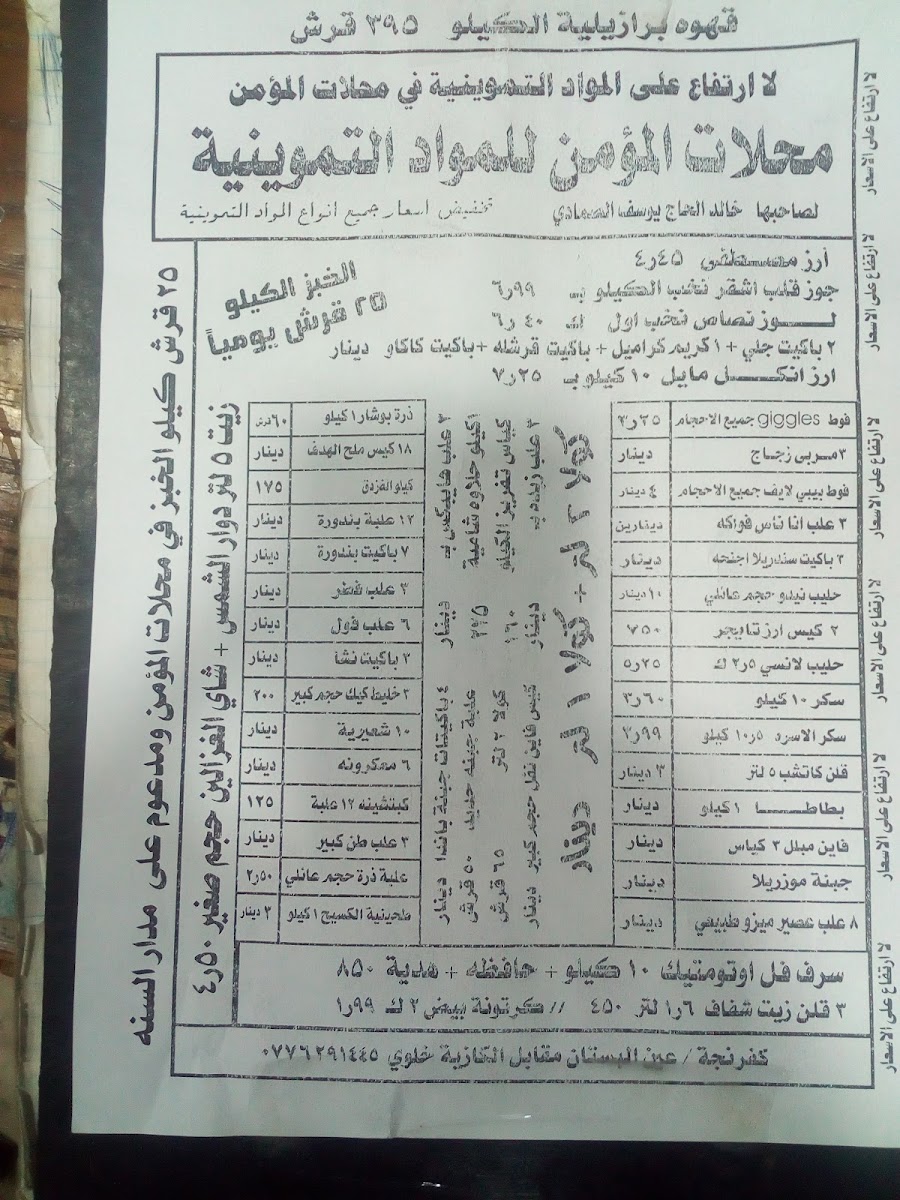 قهوه برازيلية الكيلو ٣٩٥ قرش
لا ارتفاع على المواد التموينية في محلات المؤمن
محلات المؤمن للمواد التموينية
لصاحبها خالد الحاج يوسف الصمادي تخفيض اسعار جميع انواع المواد التموينية
أرز ٤٥ر٤
جوز قلب اشقر نخب الكيلو بـ ٩٩ر٦
لـــوز نخب اول ك ٤٠ر٦
٢ باكيت جلي + ١ كريم كراميل + باكيت قرشله + باكيت كاكاو دينار
ارز انكـــل مايل ١٠ كيلو بـ ٢٥ر٧
الخبز الكيلو
٢٥ قرش يومياً
فوط giggles جميع الاحجام ٢٥ر٣
٣ مربى زجاج دينار
فوط بيبي لايف جميع الاحجام ٤ دينار
٣ علب انا ناس فواكه دينارين
٢ باكيت سندريلا اجنحه دينار
حليب نيدو حجم عائلي ١٠ دينار
٢ كيس ارز تايجر ٧٥٠
حليب لانسي ٢٫٥ ك ٢٥ر٥
سكر ١٠ كيلو ٦٠ر٣
سكر الاسره ١٠٫٥ كيلو ٩٩ر٣
قلن كاتشب ٥ لتر ٣ دينار
بطاطـــا ١ كيلو دينار
فاين مبلل ٣ كياس دينار
جبنة موزريلا دينار
٨ علب عصير ميزو طبيعي دينار
كولا ٢ لتر + كولا ١ لتر دينار
٣ علب زبده ب دينار
كيس فاين نقل حجم كبير دينار
كياس تفريز الكيلو ١٦٠
كولا ٢ لتر ٦٥ قرش
١ كيلو حلاوه شامية ٢٢٥
علبة جبنه ٥٠ قرش
٢ علب هايبكس ب دينار
٤ باكيتات جبنة باندا دينار
ذرة بوشار ١ كيلو ٦٠ قرش
١٨ كيس ملح الهدف دينار
كيلو الفزدق ١٧٥
١٢ علبة بندورة دينار
٧ باكيت بندورة دينار
٣ علب فطر دينار
٦ علب فول دينار
٣ باكيت نشا دينار
٢ خليط كيك حجم كبير ٢٠٠
١٠ شعيرية دينار
٦ معكرونه دينار
كبتشينه ١٢ علبة ١٢٥
٣ علب طن كبير دينار
علبة ذرة حجم عائلي ٥٠ر٢
طحينية الكسيح ١ كيلو ٣ دينار
زيت ٥ لتر دوار الشمس + شاي الغزالين حجم صغير ٥٠ر٤
٢٥ قرش كيلو الخبز في محلات المؤمن ومدعوم على مدار السنه
سرف فل اوتومتيك ١٠ كيلو + حافظه + هدية ٨٥٠
٣ قلن زيت شفاف ٦ر١ لتر ٤٥٠ // كرتونة بيض ٢ ك ٩٩ر١
كفرنجة / عين البستان مقابل الكازية خلوي ٠٧٧٦٢٩١٤٤٥
لا ارتفاع على الاسعار
لا ارتفاع على الاسعار
لا ارتفاع على الاسعار
لا ارتفاع على الاسعار
لا ارتفاع على الاسعار
لا ارتفاع على الاسعار